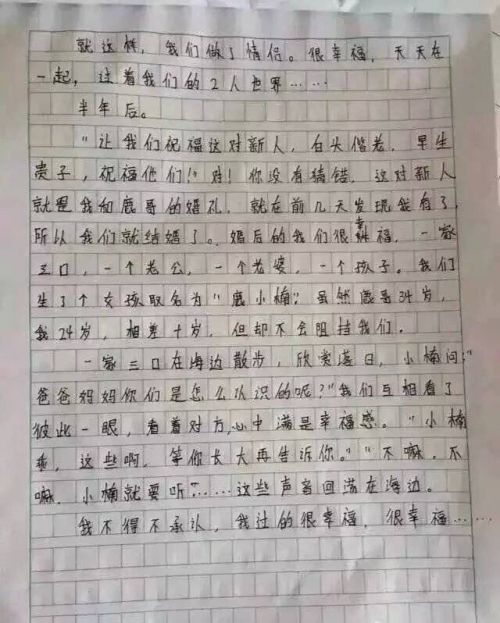 就这样，我们做了情侣。很幸福，天天在
一起，过着我们的2人世界……
半年后。
"让我们祝福这对新人，白头偕老，早生
贵子，祝福他们!"对！你没有猜错，这对新人
就是我和鹿哥的婚礼，就在前几天发现我有了，
所以我们就结婚了。婚后的我们很幸福，一家
三口，一个老公，一个老婆，一个孩子。我们
生了个女孩取名为"鹿小楠"虽然鹿哥34岁，
我24岁，相差十岁，但却不会阻挡我们。
一家三口在海边散步，欣赏落日，小楠问："
爸爸妈妈你们是怎么认识的呢？"我们互相看了
彼此一眼，看着对方，心中满是幸福感。"小楠
乖，这些啊，等你长大再告诉你。""不嘛，不
嘛，小楠就要听"……这些声音回荡在海边。
我不得不承认，我过的很幸福，很幸福……